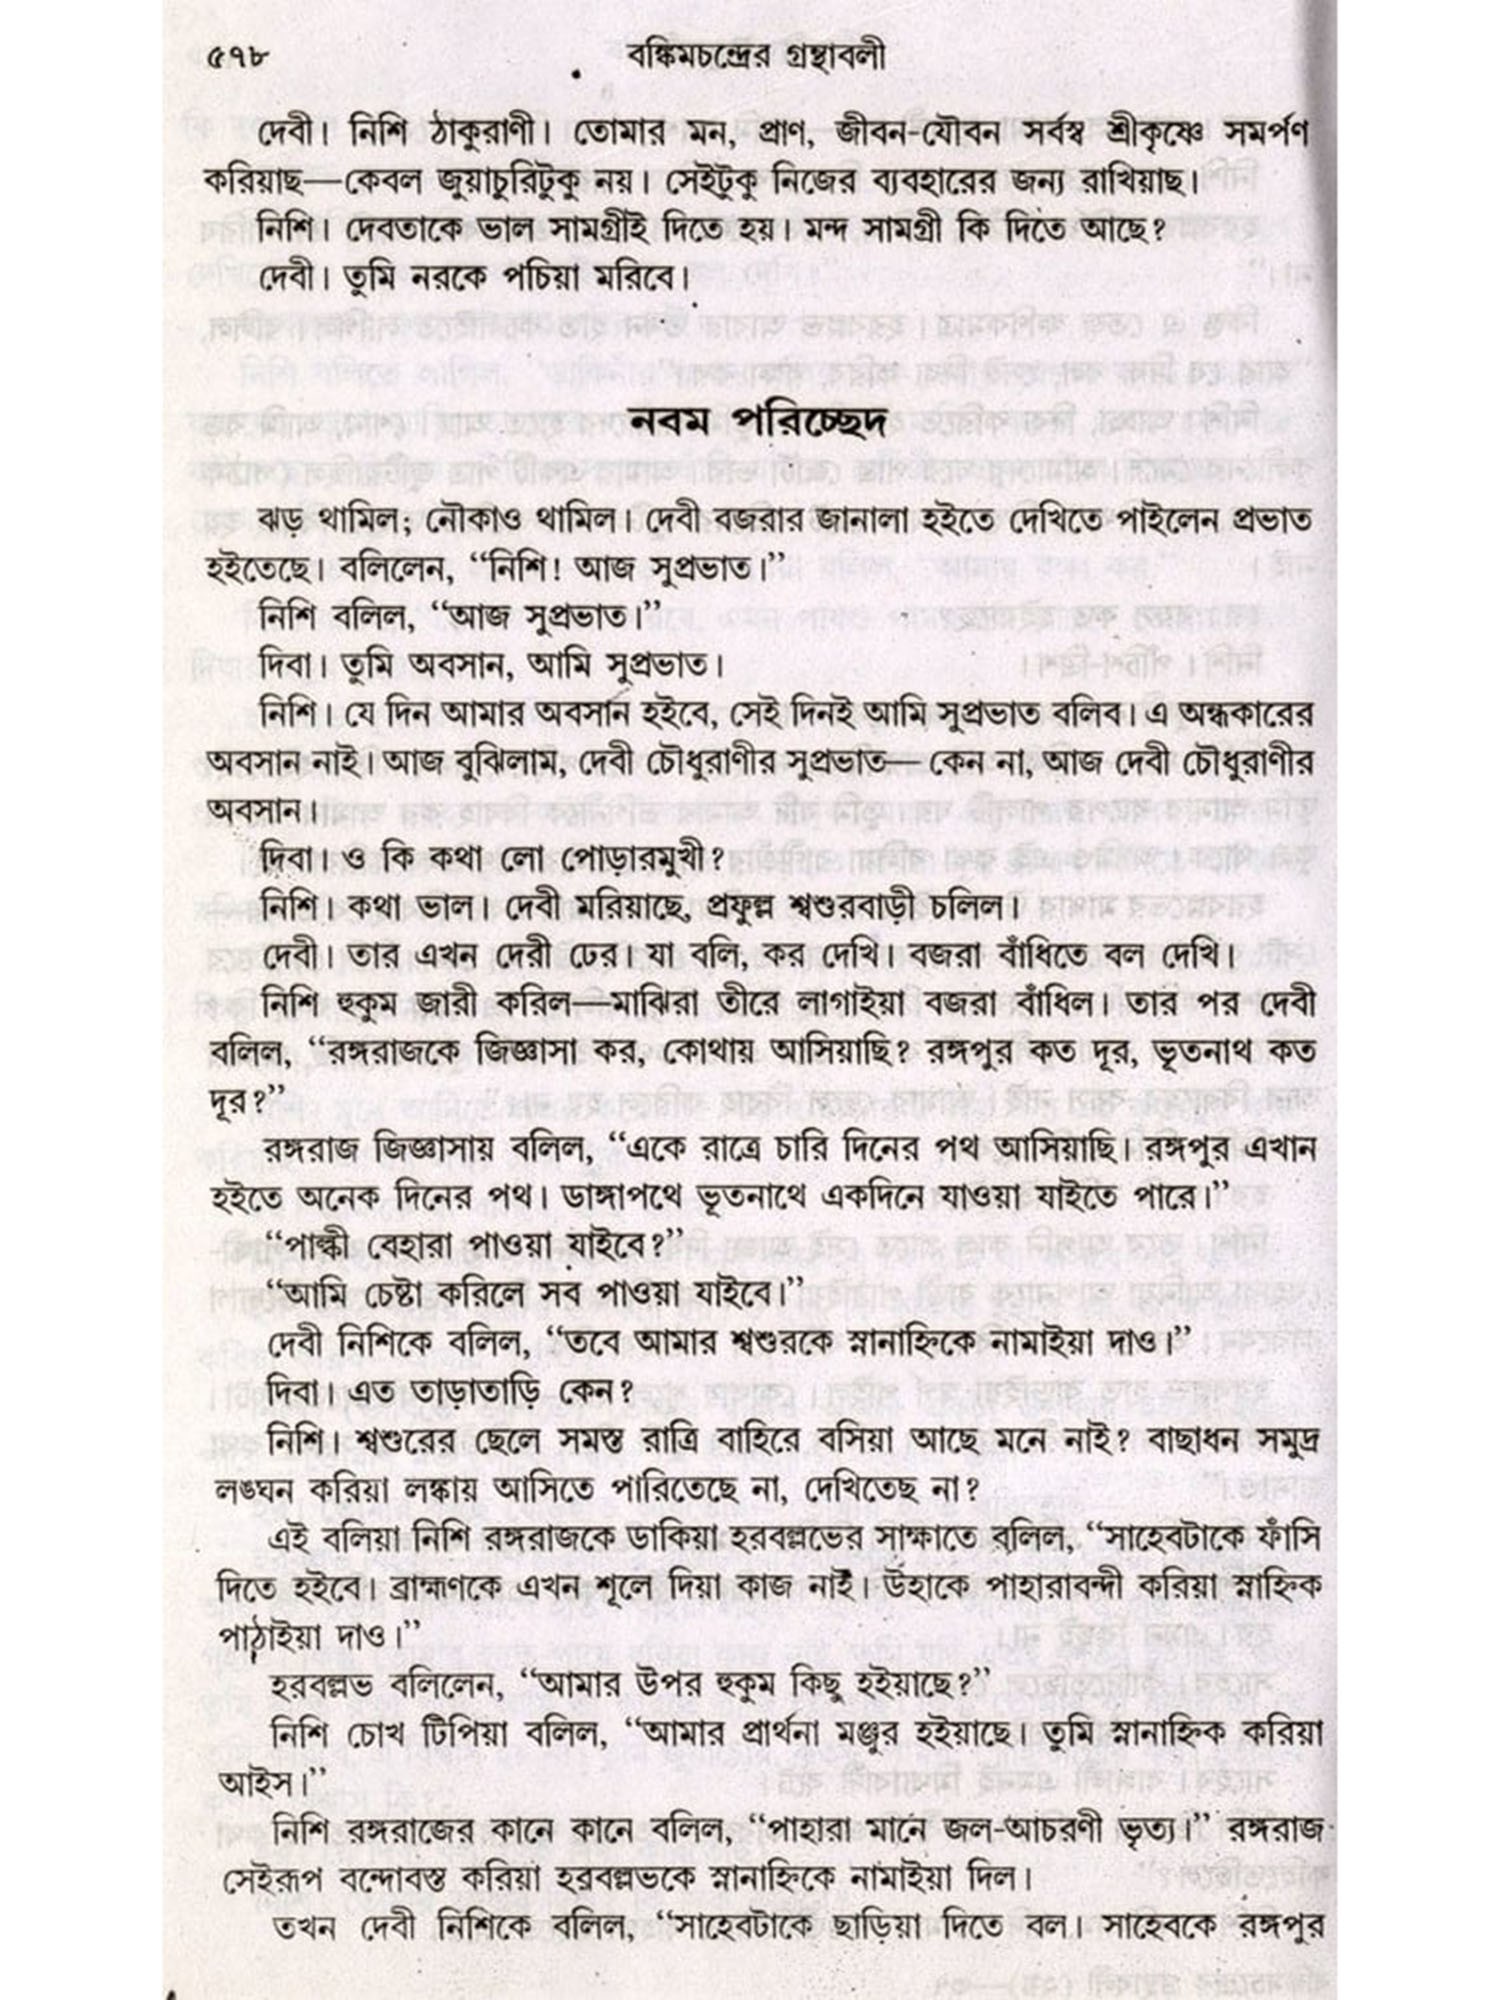 ৫৭৮
বঙ্কিমচন্দ্রের গ্রন্থাবলী
দেবী। নিশি ঠাকুরাণী। তোমার মন, প্রাণ, জীবন-যৌবন সর্বস্ব শ্রীকৃষ্ণে সমর্পণ
করিয়াছ—কেবল জুয়াচুরিটুকু নয়। সেইটুকু নিজের ব্যবহারের জন্য রাখিয়াছ।
নিশি। দেবতাকে ভাল সামগ্রীই দিতে হয়। মন্দ সামগ্রী কি দিতে আছে?
দেবী। তুমি নরকে পচিয়া মরিবে।
নবম পরিচ্ছেদ
ঝড় থামিল; নৌকাও থামিল। দেবী বজরার জানালা হইতে দেখিতে পাইলেন প্রভাত
হইতেছে। বলিলেন, “নিশি! আজ সুপ্রভাত।”
নিশি বলিল, “আজ সুপ্রভাত।”
দিবা। তুমি অবসান, আমি সুপ্রভাত।
নিশি। যে দিন আমার অবসান হইবে, সেই দিনই আমি সুপ্রভাত বলিব। এ অন্ধকারের
অবসান নাই। আজ বুঝিলাম, দেবী চৌধুরাণীর সুপ্রভাত— কেন না, আজ দেবী চৌধুরাণীর
অবসান।
দিবা। ও কি কথা লো পোড়ারমুখী?
নিশি। কথা ভাল। দেবী মরিয়াছে, প্রফুল্ল শ্বশুরবাড়ী চলিল।
দেবী। তার এখন দেরী ঢের। যা বলি, কর দেখি। বজরা বাঁধিতে বল দেখি।
নিশি হুকুম জারী করিল—মাঝিরা তীরে লাগাইয়া বজরা বাঁধিল। তার পর দেবী
বলিল, “রঙ্গরাজকে জিজ্ঞাসা কর, কোথায় আসিয়াছি? রঙ্গপুর কত দূর, ভূতনাথ কত
দূর?”
রঙ্গরাজ জিজ্ঞাসায় বলিল, “একে রাত্রে চারি দিনের পথ আসিয়াছি। রঙ্গপুর এখান
হইতে অনেক দিনের পথ। ডাঙ্গাপথে ভূতনাথে একদিনে যাওয়া যাইতে পারে।”
“পাল্কী বেহারা পাওয়া যাইবে?”
“আমি চেষ্টা করিলে সব পাওয়া যাইবে।”
দেবী নিশিকে বলিল, “তবে আমার শ্বশুরকে স্নানাহ্নিকে নামাইয়া দাও।”
দিবা। এত তাড়াতাড়ি কেন?
নিশি। শ্বশুরের ছেলে সমস্ত রাত্রি বাহিরে বসিয়া আছে মনে নাই? বাছাধন সমুদ্র
লঙ্ঘন করিয়া লঙ্কায় আসিতে পারিতেছে না, দেখিতেছ না?
এই বলিয়া নিশি রঙ্গরাজকে ডাকিয়া হরবল্লভের সাক্ষাতে বলিল, “সাহেবটাকে ফাঁসি
দিতে হইবে। ব্রাহ্মণকে এখন শূলে দিয়া কাজ নাই। উহাকে পাহারাবন্দী করিয়া স্নাহ্নিক
পাঠাইয়া দাও।”
হরবল্লভ বলিলেন, “আমার উপর হুকুম কিছু হইয়াছে?”
নিশি চোখ টিপিয়া বলিল, “আমার প্রার্থনা মঞ্জুর হইয়াছে। তুমি স্নানাহ্নিক করিয়া
আইস।”
নিশি রঙ্গরাজের কানে কানে বলিল, “পাহারা মানে জল-আচরণী ভৃত্য।” রঙ্গরাজ
সেইরূপ বন্দোবস্ত করিয়া হরবল্লভকে স্নানাহ্নিকে নামাইয়া দিল।
তখন দেবী নিশিকে বলিল, “সাহেবটাকে ছাড়িয়া দিতে বল। সাহেবকে রঙ্গপুর